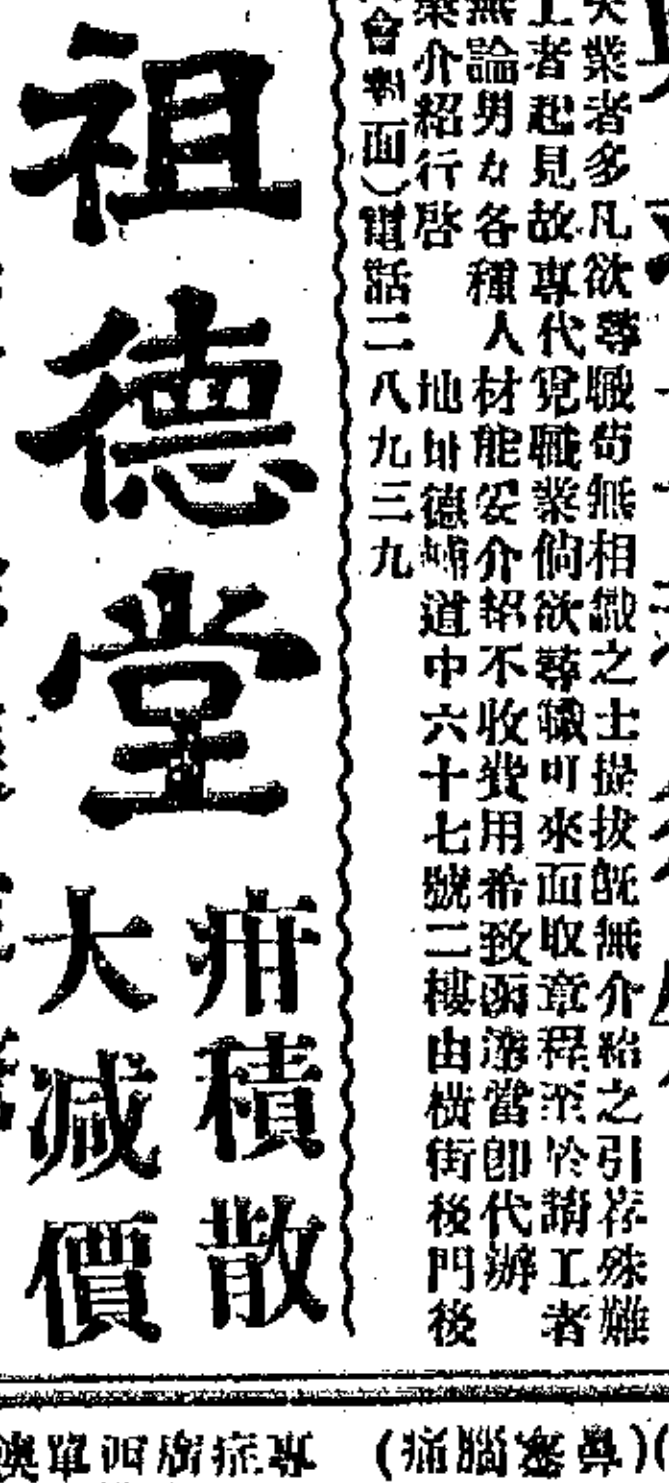 失業者多凡欲尋職苟無相識之士提拔既無介紹之引荐殊難
工者起見故專代覓職業倘欲尋職可來面取章程至於請工者
無論男女各種人材能妥介紹不收費用希致函達當即代辦
業介紹行啓　地址德輔道中六十七號二樓由橫街後門後
會對面）電話二八九三九
祖德堂
疳積散
大減價